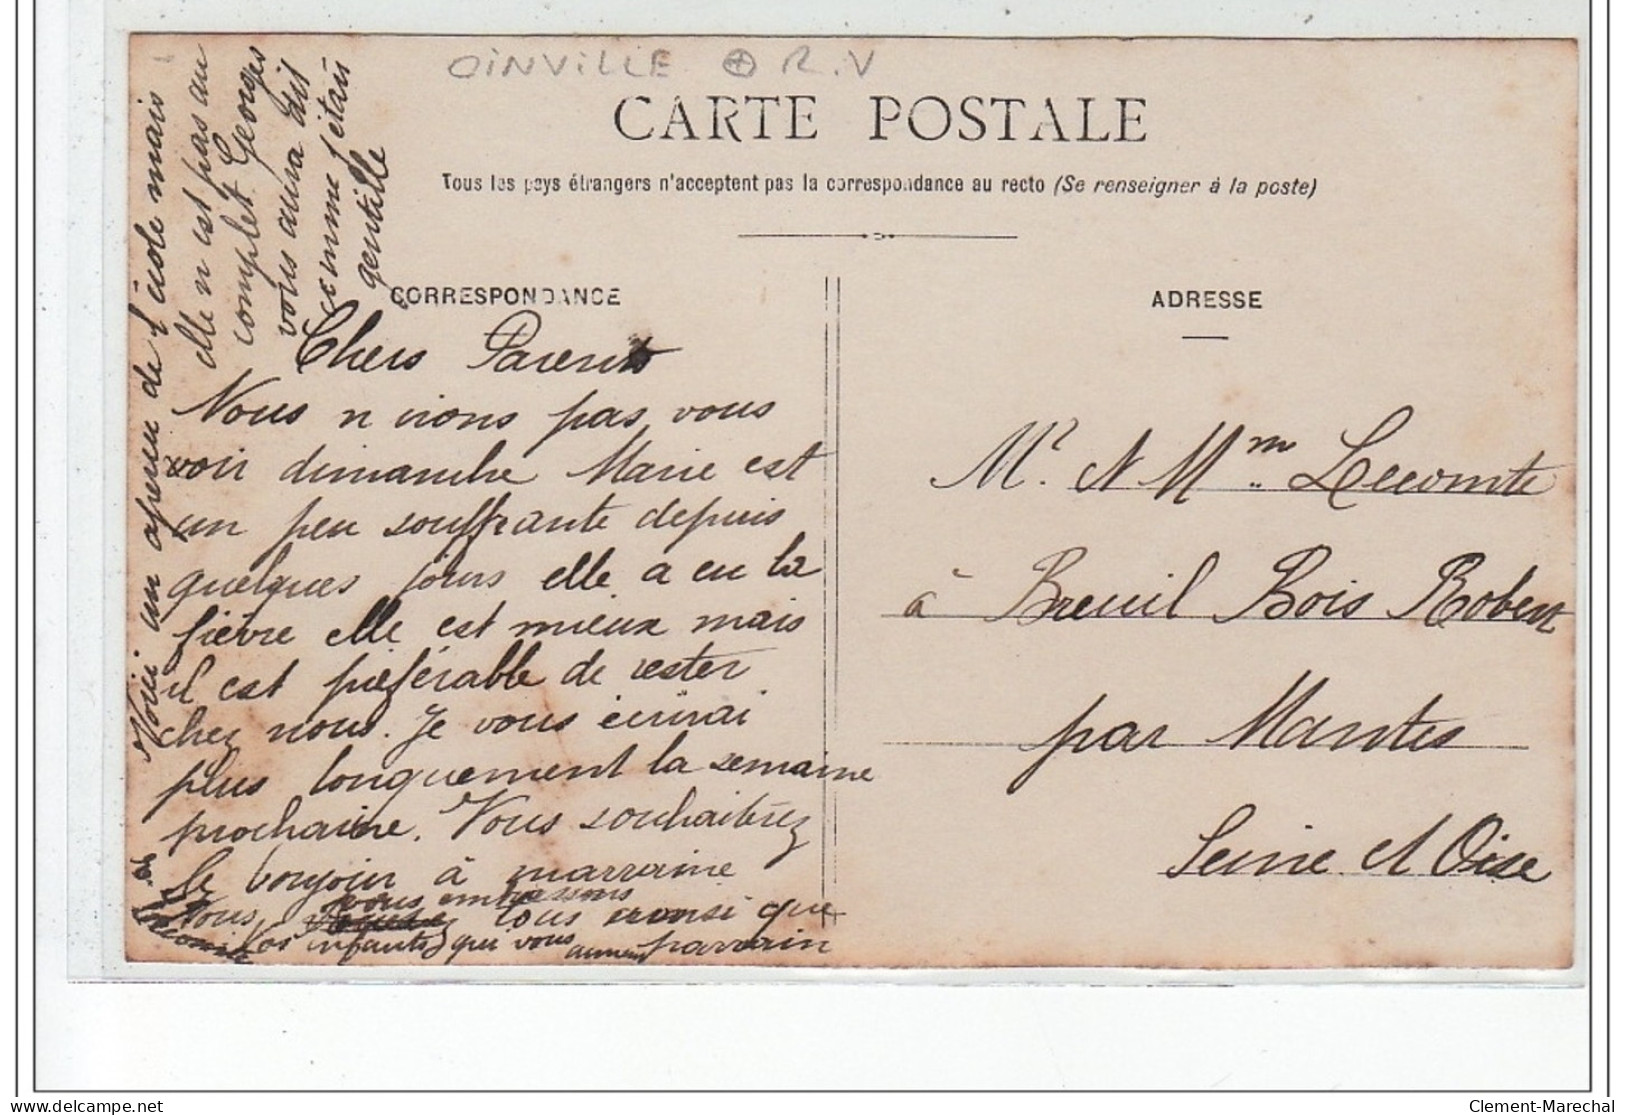 OINVILLE ⊕ R.V
CARTE POSTALE
Tous les pays étrangers n'acceptent pas la correspondance au recto (Se renseigner à la poste)
CORRESPONDANCE
Chers Parents
Nous n irions pas vous
voir dimanche Marie est
un peu souffrante depuis
quelques jours elle a eu la
fièvre elle est mieux mais
il est préférable de rester
chez nous. Je vous écrirai
plus longuement la semaine
prochaine. Vous souhaiterez
le bonjour à marraine
vous embrassons
Nous tous ainsi que
parrain
Vos enfants qui vous aiment
Voici un aperçu de l'école mais
elle n est pas au
complet Georges
vous aura dit
comme j étais
gentille
ADRESSE
Mr et Mme Lecomte
à Breuil Bois Robert
par Mantes
Seine et Oise
Clement-Marechal
delcampe.net